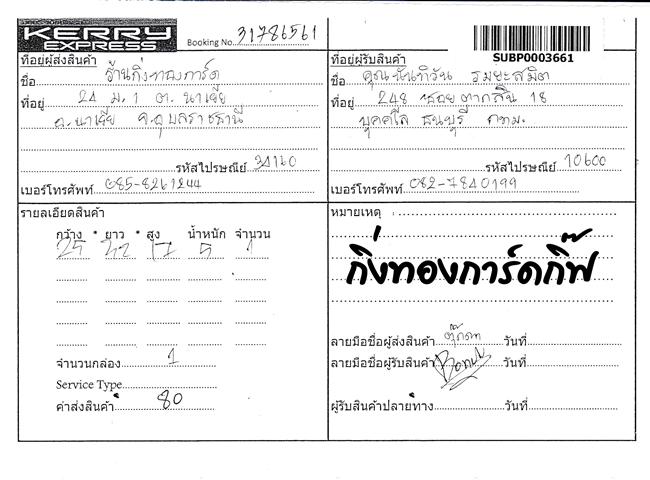 KERRY
EXPRESS
Booking No. 31786561
SUBP0003661
ที่อยู่ผู้ส่งสินค้า
ชื่อ ร้านกิ่งทองการ์ด
ที่อยู่ 24 ม.1 ต.นาเจีย
อ.นาเจีย จ.อุบลราชธานี
รหัสไปรษณีย์ 34160
เบอร์โทรศัพท์ 085-8261244
ที่อยู่ผู้รับสินค้า
ชื่อ คุณนันทิวัน รมยะสมิต
ที่อยู่ 248 ซอยตากสิน 18
บุคคโล ธนบุรี กทม.
รหัสไปรษณีย์ 10600
เบอร์โทรศัพท์ 082-7840199
รายละเอียดสินค้า
กว้าง * ยาว * สูง น้ำหนัก จำนวน
25 32 17 5 1
จำนวนกล่อง 1
Service Type
ค่าส่งสินค้า 80
หมายเหตุ
กิ่งทองการ์ดกิ๊ฟ
ลายมือชื่อผู้ส่งสินค้า ตุ๊กตา วันที่
ลายมือชื่อผู้รับสินค้า วันที่
ผู้รับสินค้าปลายทาง วันที่